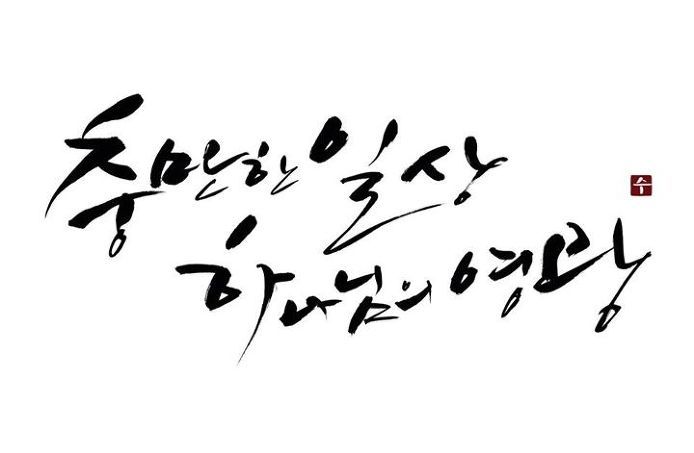 충만한 일상
하나님의 영광
수